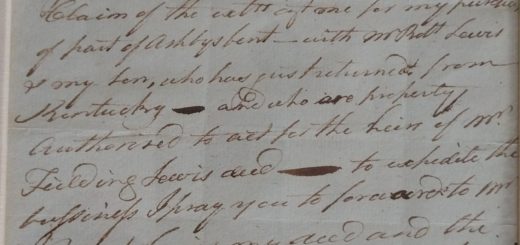 Claim of the
of part of Ashbys bent — with Mr Robt Lewis
& my son, who has just returned from
Kentucky — and who are property
Authorised to act for the heirs of Mr.
Fielding Lewis and — to expedite the
bussiness I pray you to forward to Mr
my and the